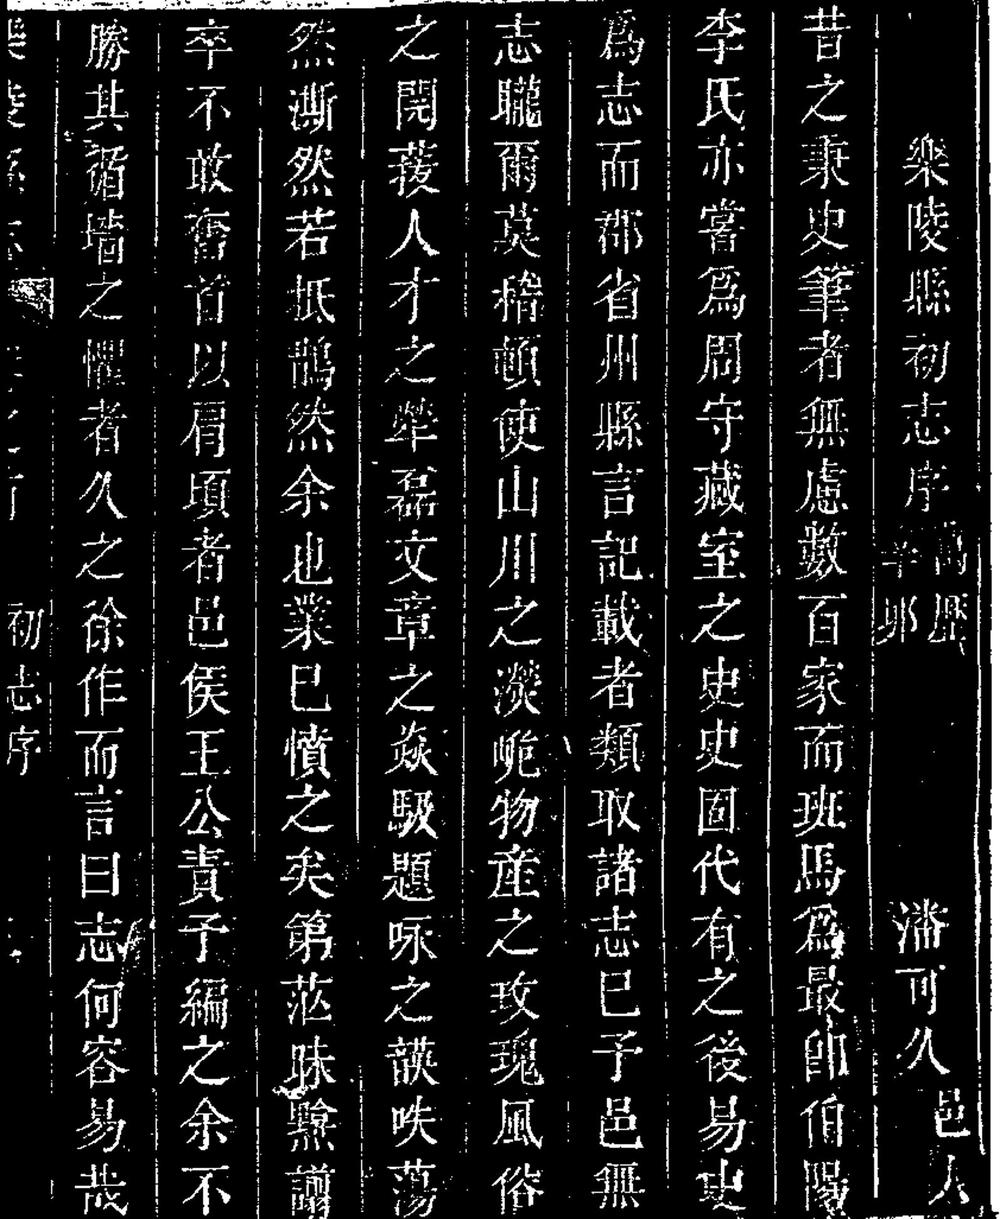 樂陵縣初志序 萬歷辛卯 潘可久 邑人
昔之秉史筆者無慮數百家而班馬爲最即伯陽
李氏亦嘗爲周守藏室之史史固代有之後易史
爲志而郡省州縣言記載者類取諸志已予邑無
志矓爾莫稽頓使山川之濙峗物產之玫瑰風俗
之開蒦人才之犖磊文章之焱駁題咏之謨呹蕩
然澌然若抵鵲然余也業已憤之矣第茫昧黥謭
卒不敢奮首以肩頃者邑侯王公責予編之余不
勝其循墻之懼者久之徐作而言曰志何容易哉
樂陵縣志 初志序